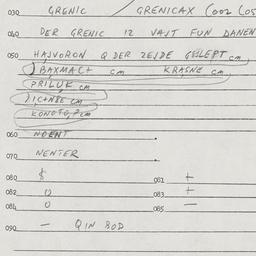 030 GRENIC / GRENICAX (002 (05
040 DER GRENIC IZ VAJT FUN DANEN
050 HAJVORON Q DER ZEJDE GELEPT cm
BAXMAC+ cm KRASNE cm
PRILUK cm
DICHNBE cm
KONOTOP cm
060 NOENT .
070 NENTER .
080 $ 081 +
082 0 083 +
084 0 085 —
090 — Q IN BOD